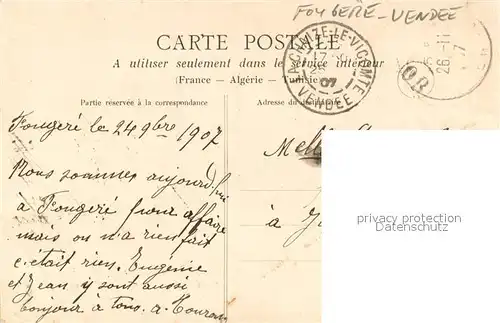 FOUGERE-VENDEE
CARTE POSTALE
A utiliser seulement dans le service intérieur
(France - Algérie - Tunisie)
LA CHAIZE-LE-VICOMTE
07
VENDEE
OR
26-11
07
Partie réservée à la correspondance
Adresse du destinataire
Fougeré le 24 9bre 1907
Nous sommes aujourd'hui
à Fougeré pour affaire
mais on n'a rien fait
c'était rien. Eugénie
et Jean y sont aussi
bonjour à tous. a
Melle
à
privacy protection
Datenschutz